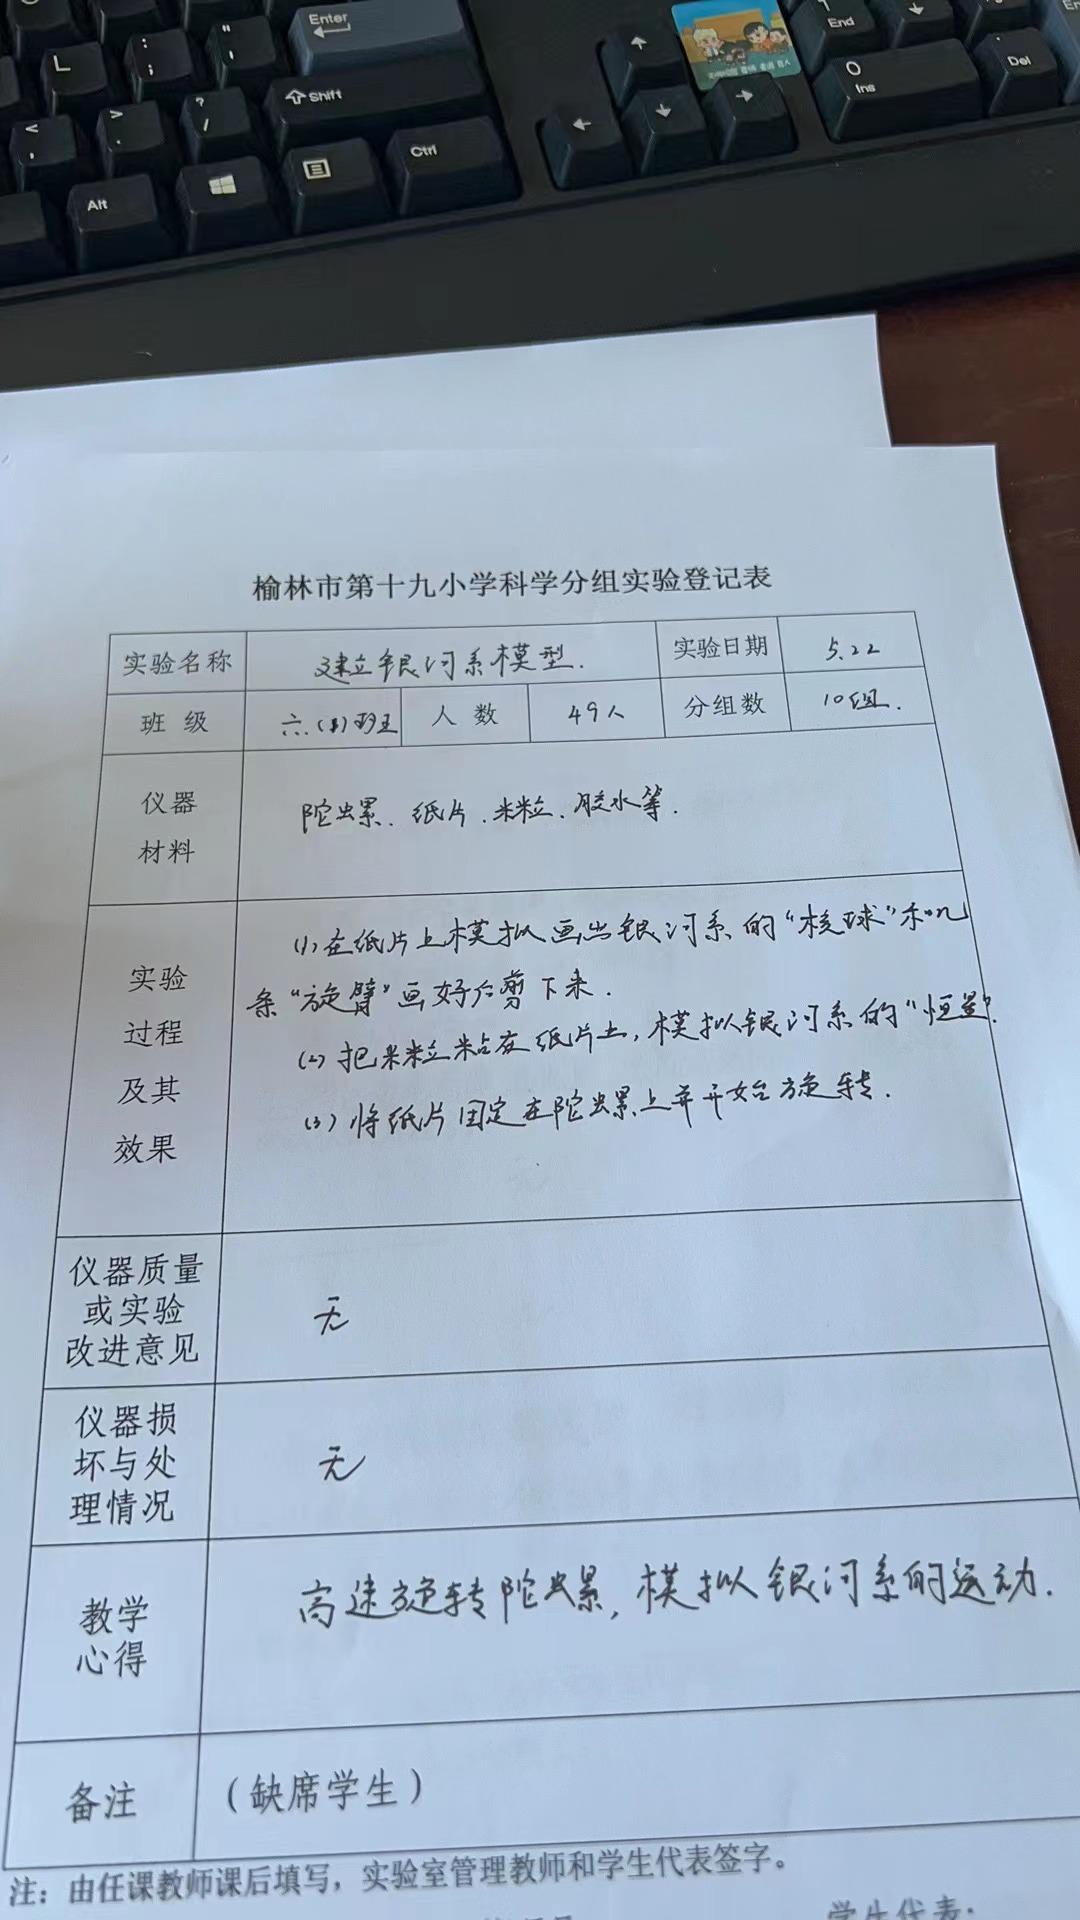 Enter
End
L
: ;
" '
Shift
0 Ins
. Del
< ,
> .
? /
Ctrl
Alt
榆林市第十九小学科学分组实验登记表
实验名称 建立银河系模型. 实验日期 5.22
班 级 六.(1)班 人 数 49人 分组数 10组.
仪器
材料
陀螺、纸片、米粒、胶水等.
实验
过程
及其
效果
(1)在纸片上模拟画出银河系的“核球”和几
条“旋臂”画好后剪下来.
(2)把米粒粘在纸片上,模拟银河系的“恒星”.
(3)将纸片固定在陀螺上并开始旋转.
仪器质量
或实验
改进意见
无
仪器损
坏与处
理情况
无
教学
心得
高速旋转陀螺,模拟银河系的运动.
备注 (缺席学生)
注:由任课教师课后填写,实验室管理教师和学生代表签字。
学生代表: